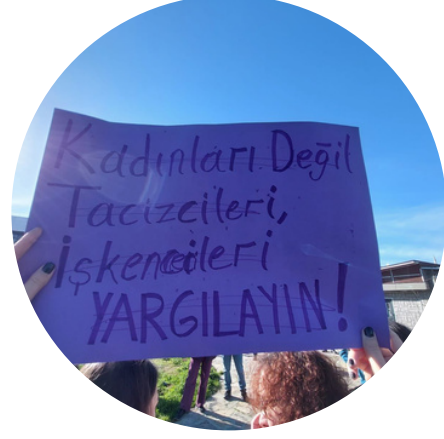 Kadınları Değil
Tacizcileri,
İşkencecileri
YARGILAYIN!